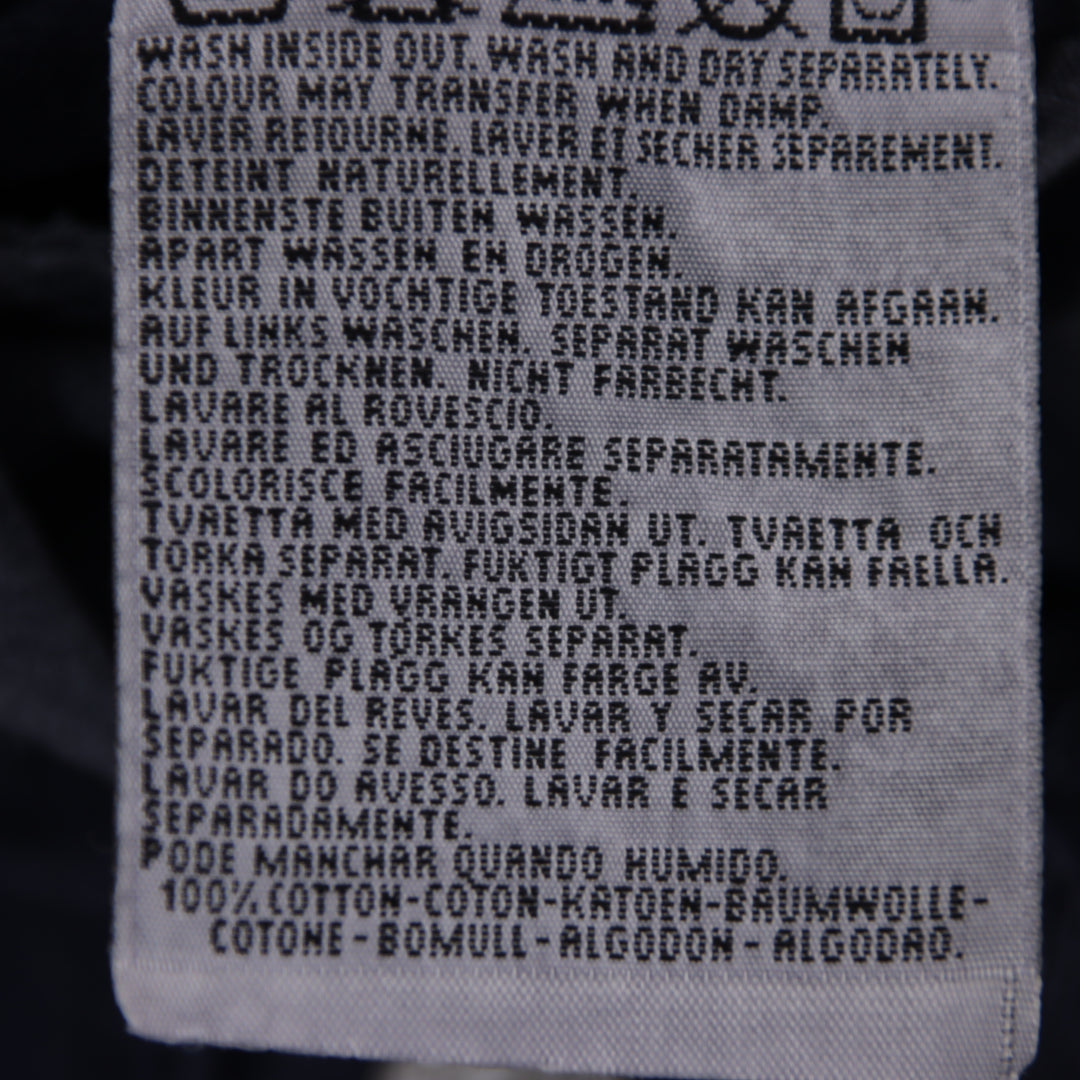 WASH INSIDE OUT. WASH AND DRY SEPARATELY.
COLOUR MAY TRANSFER WHEN DAMP.
LAVER RETOURNE. LAVER ET SECHER SEPAREMENT.
DETEINT NATURELLEMENT.
BINNENSTE BUITEN WASSEN.
APART WASSEN EN DROGEN.
KLEUR IN VOCHTIGE TOESTAND KAN AFGAAN.
AUF LINKS WASCHEN. SEPARAT WASCHEN
UND TROCKNEN. NICHT FARBECHT.
LAVARE AL ROVESCIO.
LAVARE ED ASCIUGARE SEPARATAMENTE.
SCOLORISCE FACILMENTE.
TVAETTA MED AVIGSIDAN UT. TVAETTA OCH
TORKA SEPARAT. FUKTIGT PLAGG KAN FAELLA.
VASKES MED VRANGEN UT.
VASKES OG TORKES SEPARAT.
FUKTIGE PLAGG KAN FARGE AV.
LAVAR DEL REVES. LAVAR Y SECAR POR
SEPARADO. SE DESTINE FACILMENTE.
LAVAR DO AVESSO. LAVAR E SECAR
SEPARADAMENTE.
PODE MANCHAR QUANDO HUMIDO.
100% COTTON-COTON-KATOEN-BAUMWOLLE-
COTONE-BOMULL-ALGODON-ALGODAO.